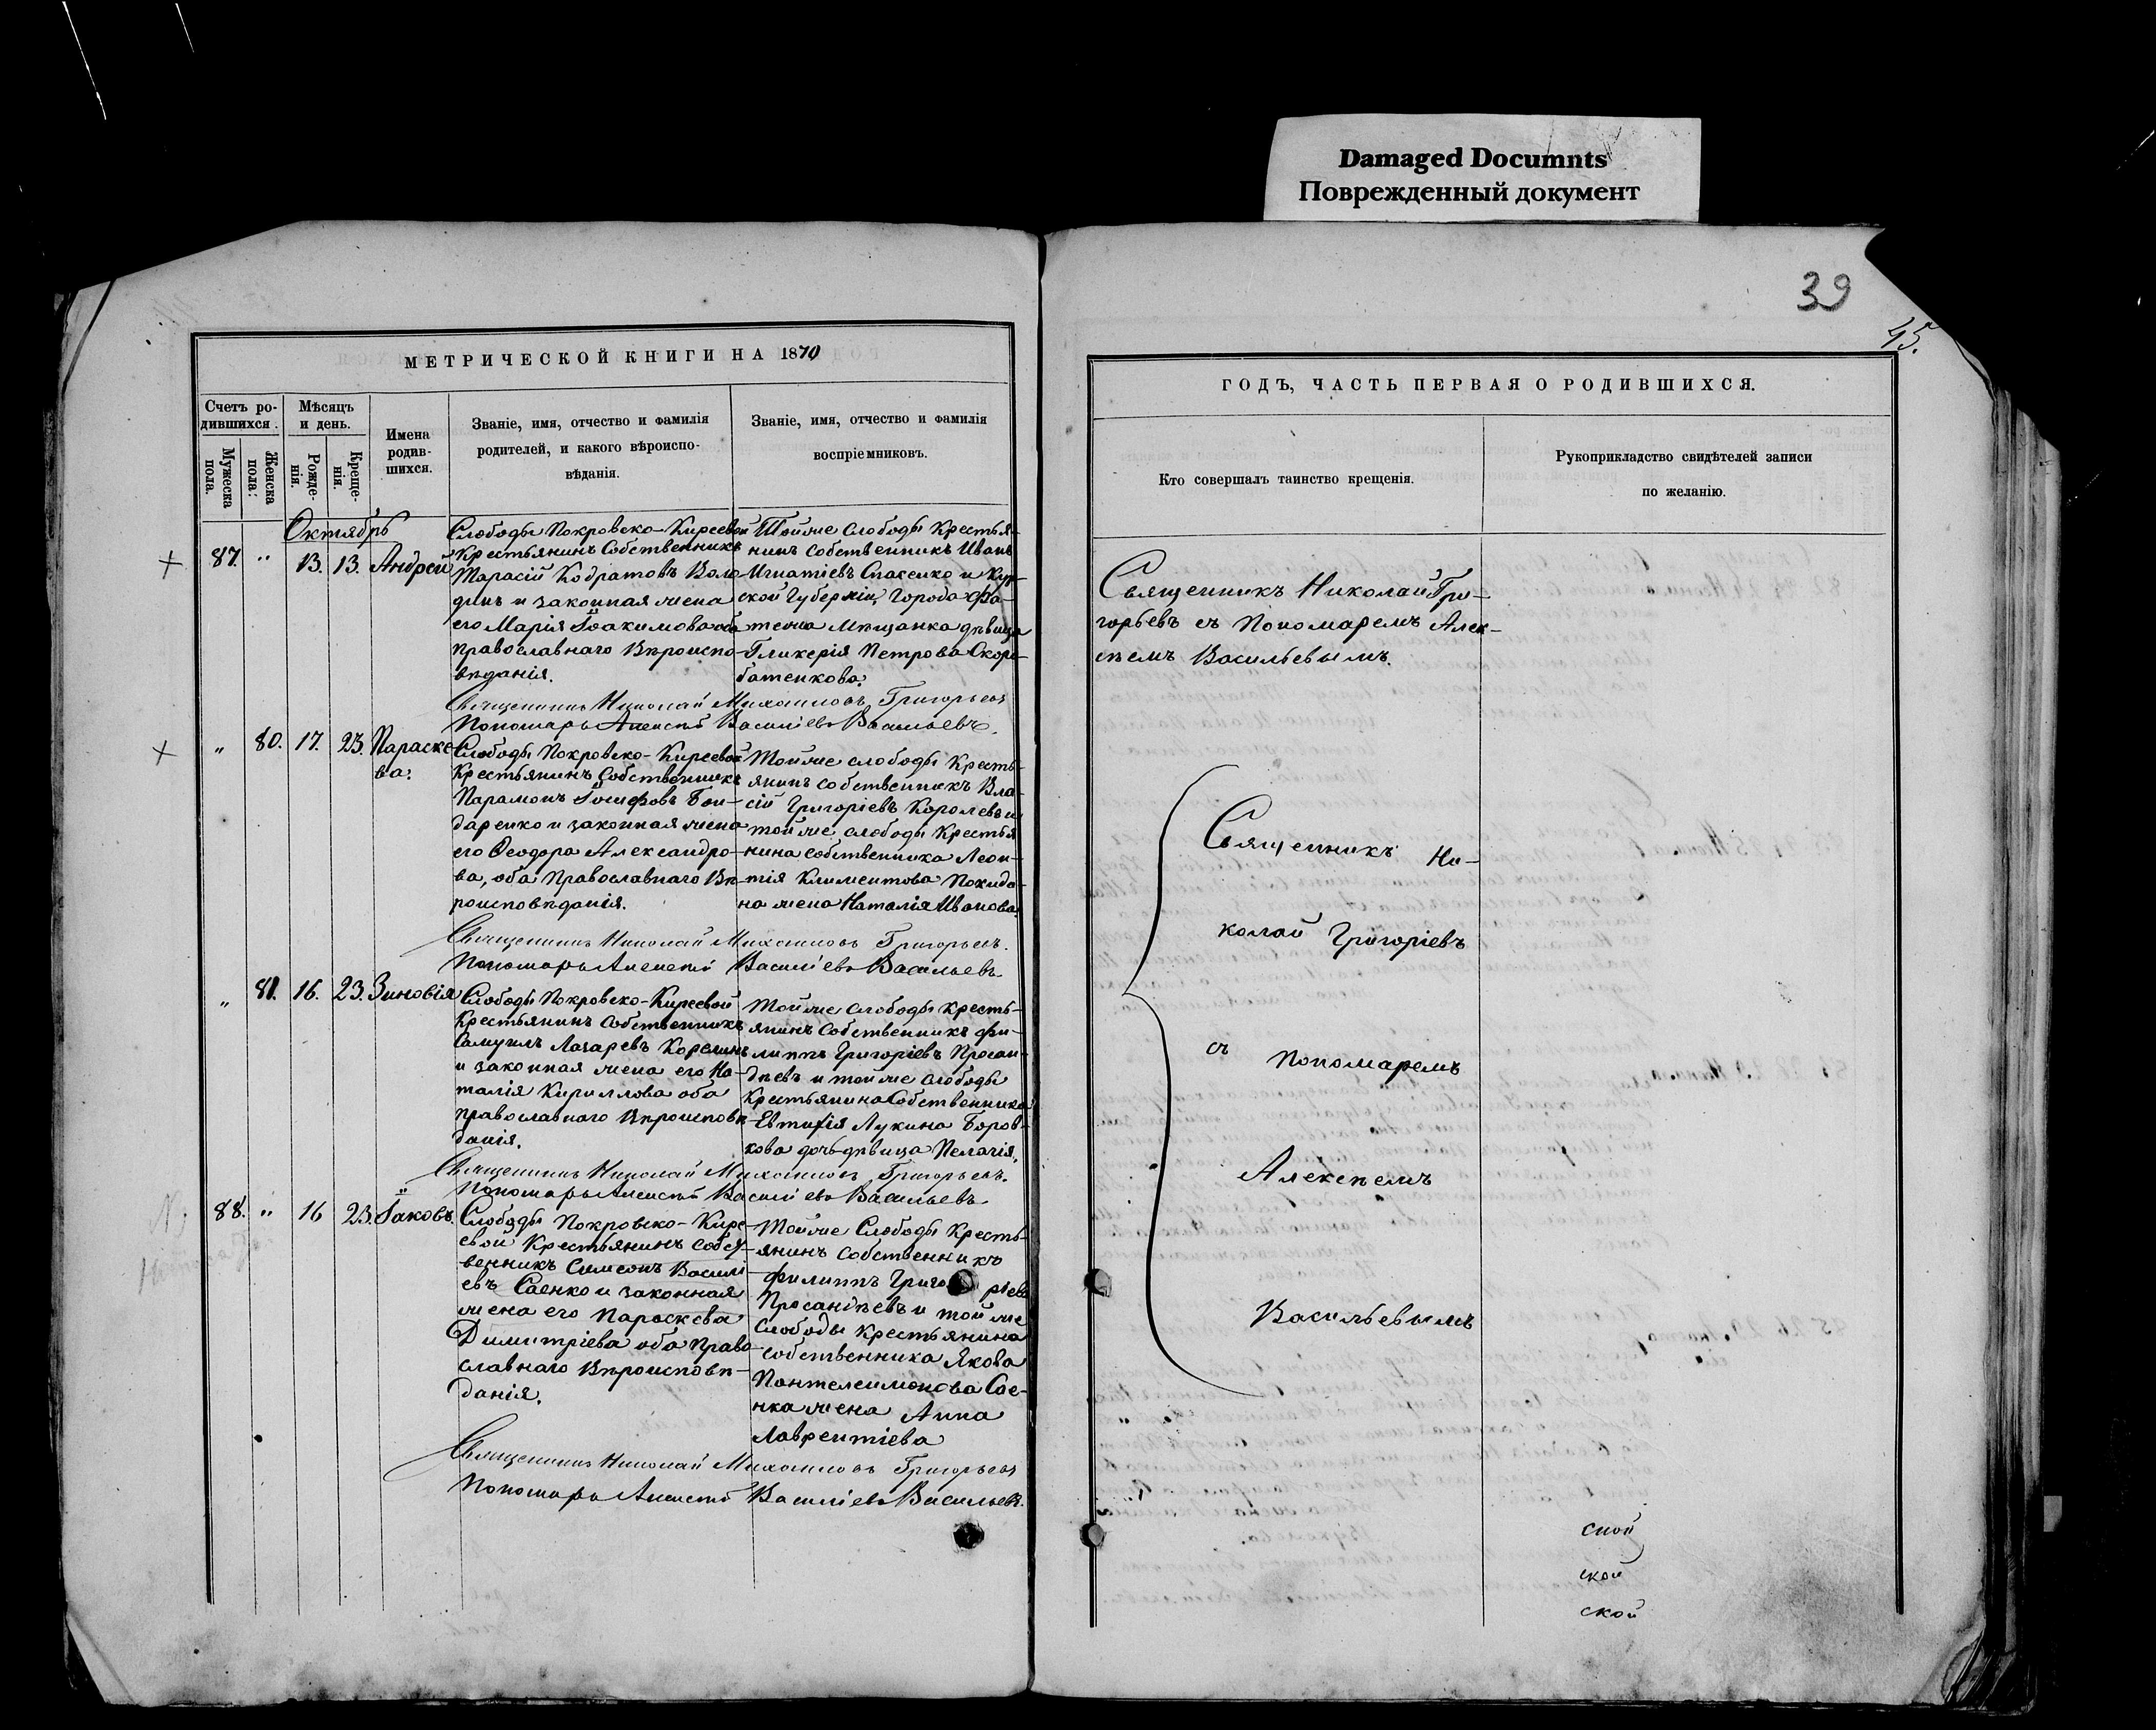 Damaged Documnts
Поврежденный документ
39
45.
МЕТРИЧЕСКОЙ КНИГИ НА 1870
Счетъ ро-
дившихся.
Мужеска
пола.
Женска
пола.
Мѣсяцъ
и день.
Рожде-
нія.
Креще-
нія.
Имена
родив-
шихся.
Званіе, имя, отчество и фамилія
родителей, и какого вѣроиспо-
вѣданія.
Званіе, имя, отчество и фамилія
воспріемниковъ.
Октябрь
87. " 13. 13. Андрей
Слободы Покровско-Киреевой
Крестьянинъ Собственникъ
Тарасій Кодратовъ Воло-
динъ и законная жена
его Марія Іоакимова оба
православнаго Вѣроиспо-
вѣданія.
Тойже слободы Крестья-
нинъ собственникъ Иванъ
Игнатіевъ Спасенко и Кур-
ской Губерніи, Города Фа-
тежа Мѣщанка дѣвица
Гликерія Петрова Скоро-
батенкова.
Священникъ Николай Михаиловъ Григорьевъ
Пономарь Алексѣй Василіевъ Васильевъ.
" 80. 17. 23. Параске-
ва.
Слободы Покровско-Киреевой
Крестьянинъ Собственникъ
Парамонъ Іосифовъ Бон-
даренко и законная жена
его Ѳеодора Александро-
ва, оба Православнаго Вѣ-
роисповѣданія.
Тойже слободы Кресть-
янинъ собственникъ Вла-
сій Григоріевъ Королевъ и
тойже слободы Крестья
нина собственника Леон-
тія Климентова Покида-
на жена Наталія Иванова.
Священникъ Николай Михаиловъ Григорьевъ.
Пономарь Алексѣй Василіевъ Васильевъ
" 81. 16. 23. Зиновія
Слободы Покровско-Киреевой
Крестьянинъ Собственникъ
Самуилъ Лазаревъ Корелинъ
и законная жена его На-
талія Кириллова оба
православнаго Вѣроисповѣ-
данія.
Тойже слободы Кресть-
янинъ Собственникъ Фи-
липпъ Григоріевъ Просан-
дѣевъ и тойже слободы
Крестьянина Собственника
Евтихія Лукина Боров-
кова дочь дѣвица Пелагія.
Священникъ Николай Михаиловъ Григорьевъ.
Пономарь Алексѣй Василіевъ Васильевъ
88. " 16 23. Іаковъ
Слободы Покровско-Кире-
евой Крестьянинъ Собст-
венникъ Симеонъ Василі-
евъ Саенко и законная
жена его Параскева
Димитріева оба Право-
славнаго Вѣроисповѣ-
данія.
Тойже Слободы Кресть-
янинъ Собственникъ
Филиппъ Григорьевъ
Просандѣевъ и тойже
Слободы Крестьянина
собственника Якова
Пантелеимонова Сае-
нка жена Анна
Лаврентіева
Священникъ Николай Михаиловъ Григорьевъ
Пономарь Алексѣй Василіевъ Васильевъ.
ГОДЪ, ЧАСТЬ ПЕРВАЯ О РОДИВШИХСЯ.
Кто совершалъ таинство крещенія.
Рукоприкладство свидѣтелей записи
по желанію.
Священникъ Николай Гри-
горьевъ съ Пономаремъ Алек-
сѣемъ Васильевымъ.
Священникъ Ни-
колай Григоріевъ
съ Пономаремъ
Алексѣемъ
Васильевымъ
ской
ской
ской